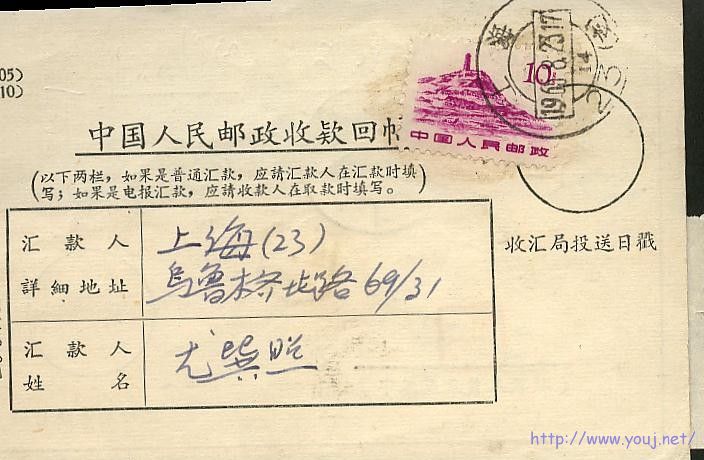 05)
10)
中国人民邮政收款回帖
(以下两栏,如果是普通汇款,应請汇款人在汇款时填
写;如果是电报汇款,应請收款人在取款时填写。)
10分
中国人民邮政
上海
1965.8.23.17
14
23(支)
汇款人
詳細地址
上海(23)
乌鲁木齐北路69/31
汇款人
姓名
尤巽照
收汇局投送日戳
http://www.youj.net/